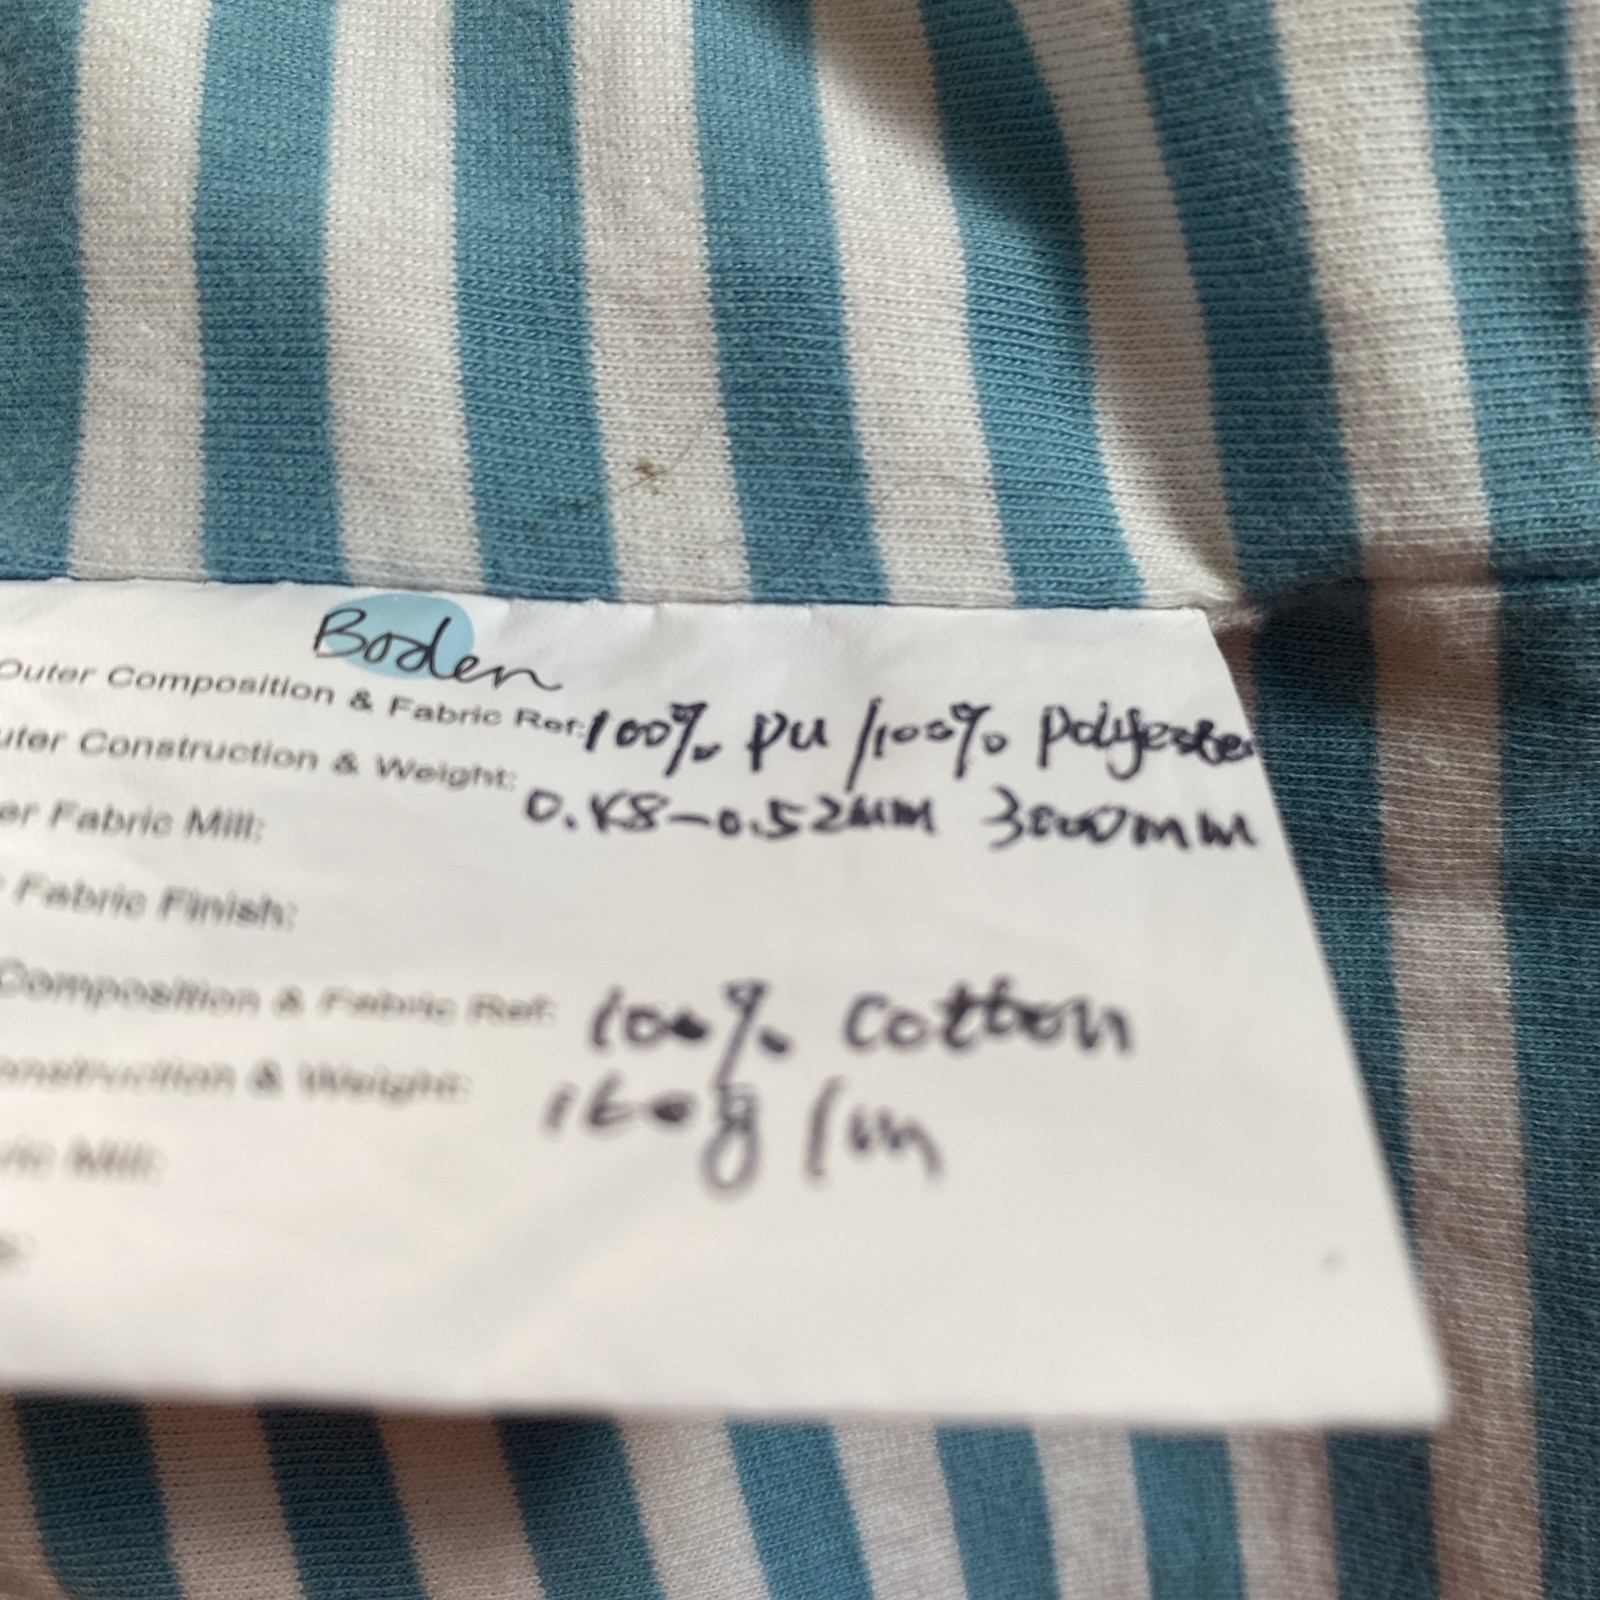 Boden
Outer Composition & Fabric Ref: 100% pu /100% polyester
uter Construction & Weight: 0.48-0.52mm 3000mm
er Fabric Mill:
Fabric Finish:
Composition & Fabric Ref: 100% cotton
onstruction & Weight: 160g /m
ric Mill: